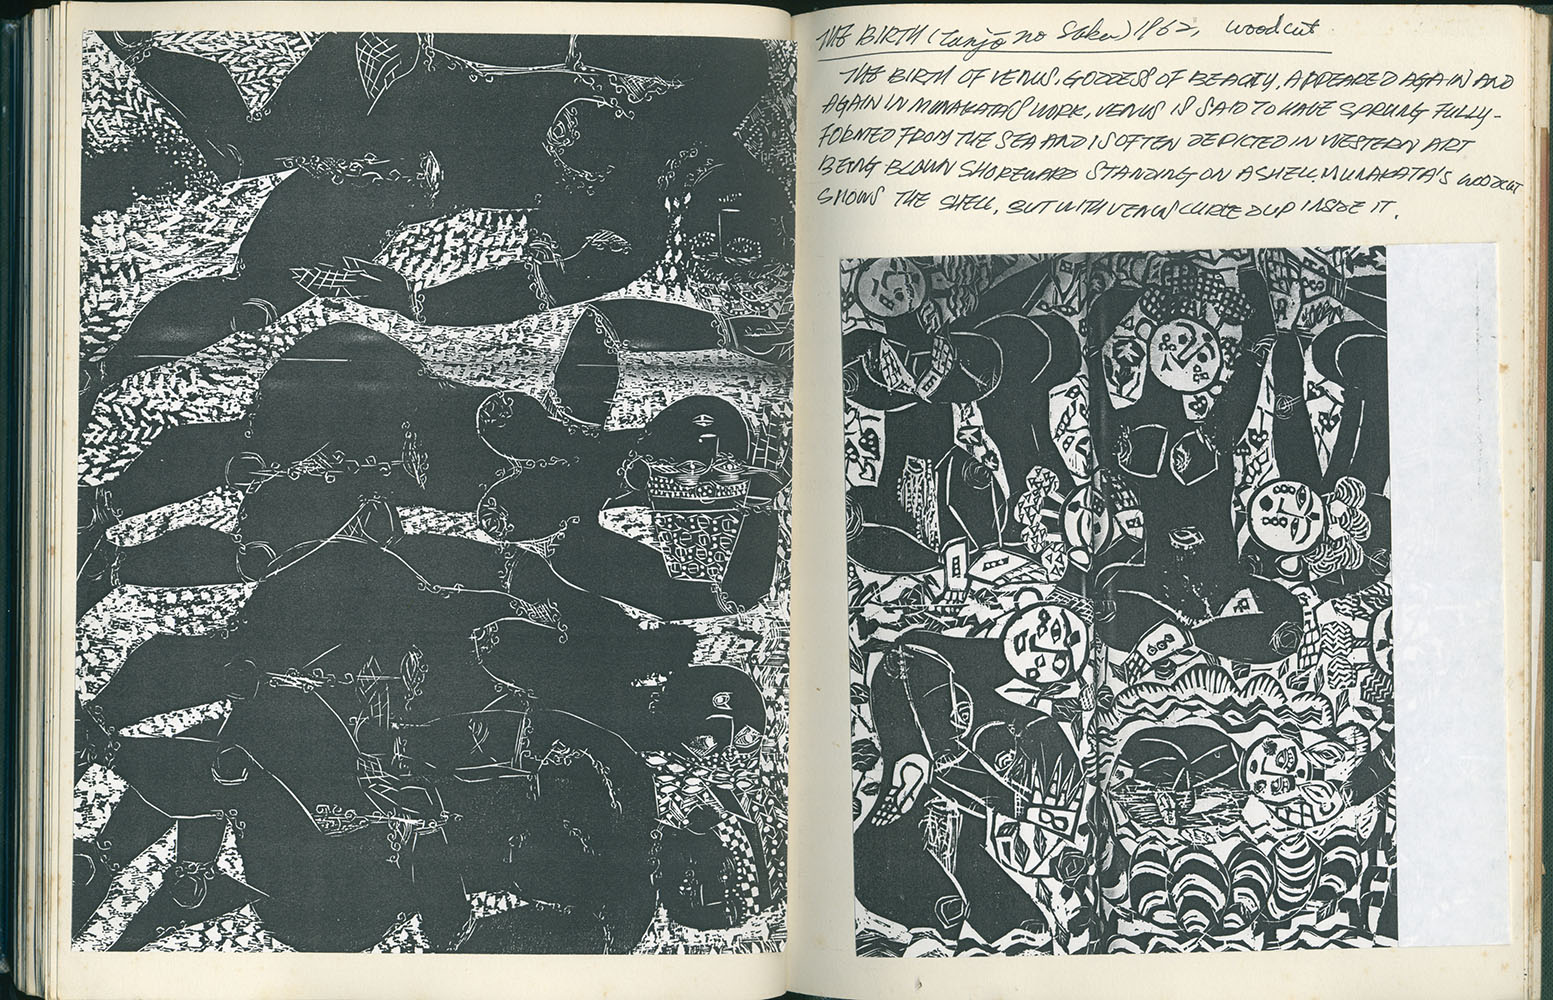 THE BIRTH (Tanjō no Saku) 1962, woodcut
THE BIRTH OF VENUS, GODDESS OF BEAUTY, APPEARED AGAIN AND
AGAIN IN MUNAKATA'S WORK, VENUS IS SAID TO HAVE SPRUNG FULLY-
FORMED FROM THE SEA AND IS OFTEN DEPICTED IN WESTERN ART
BEING BLOWN SHOREWARD STANDING ON A SHELL. MUNAKATA'S WOODCUT
SHOWS THE SHELL, BUT WITH VENUS CURLED UP INSIDE IT.